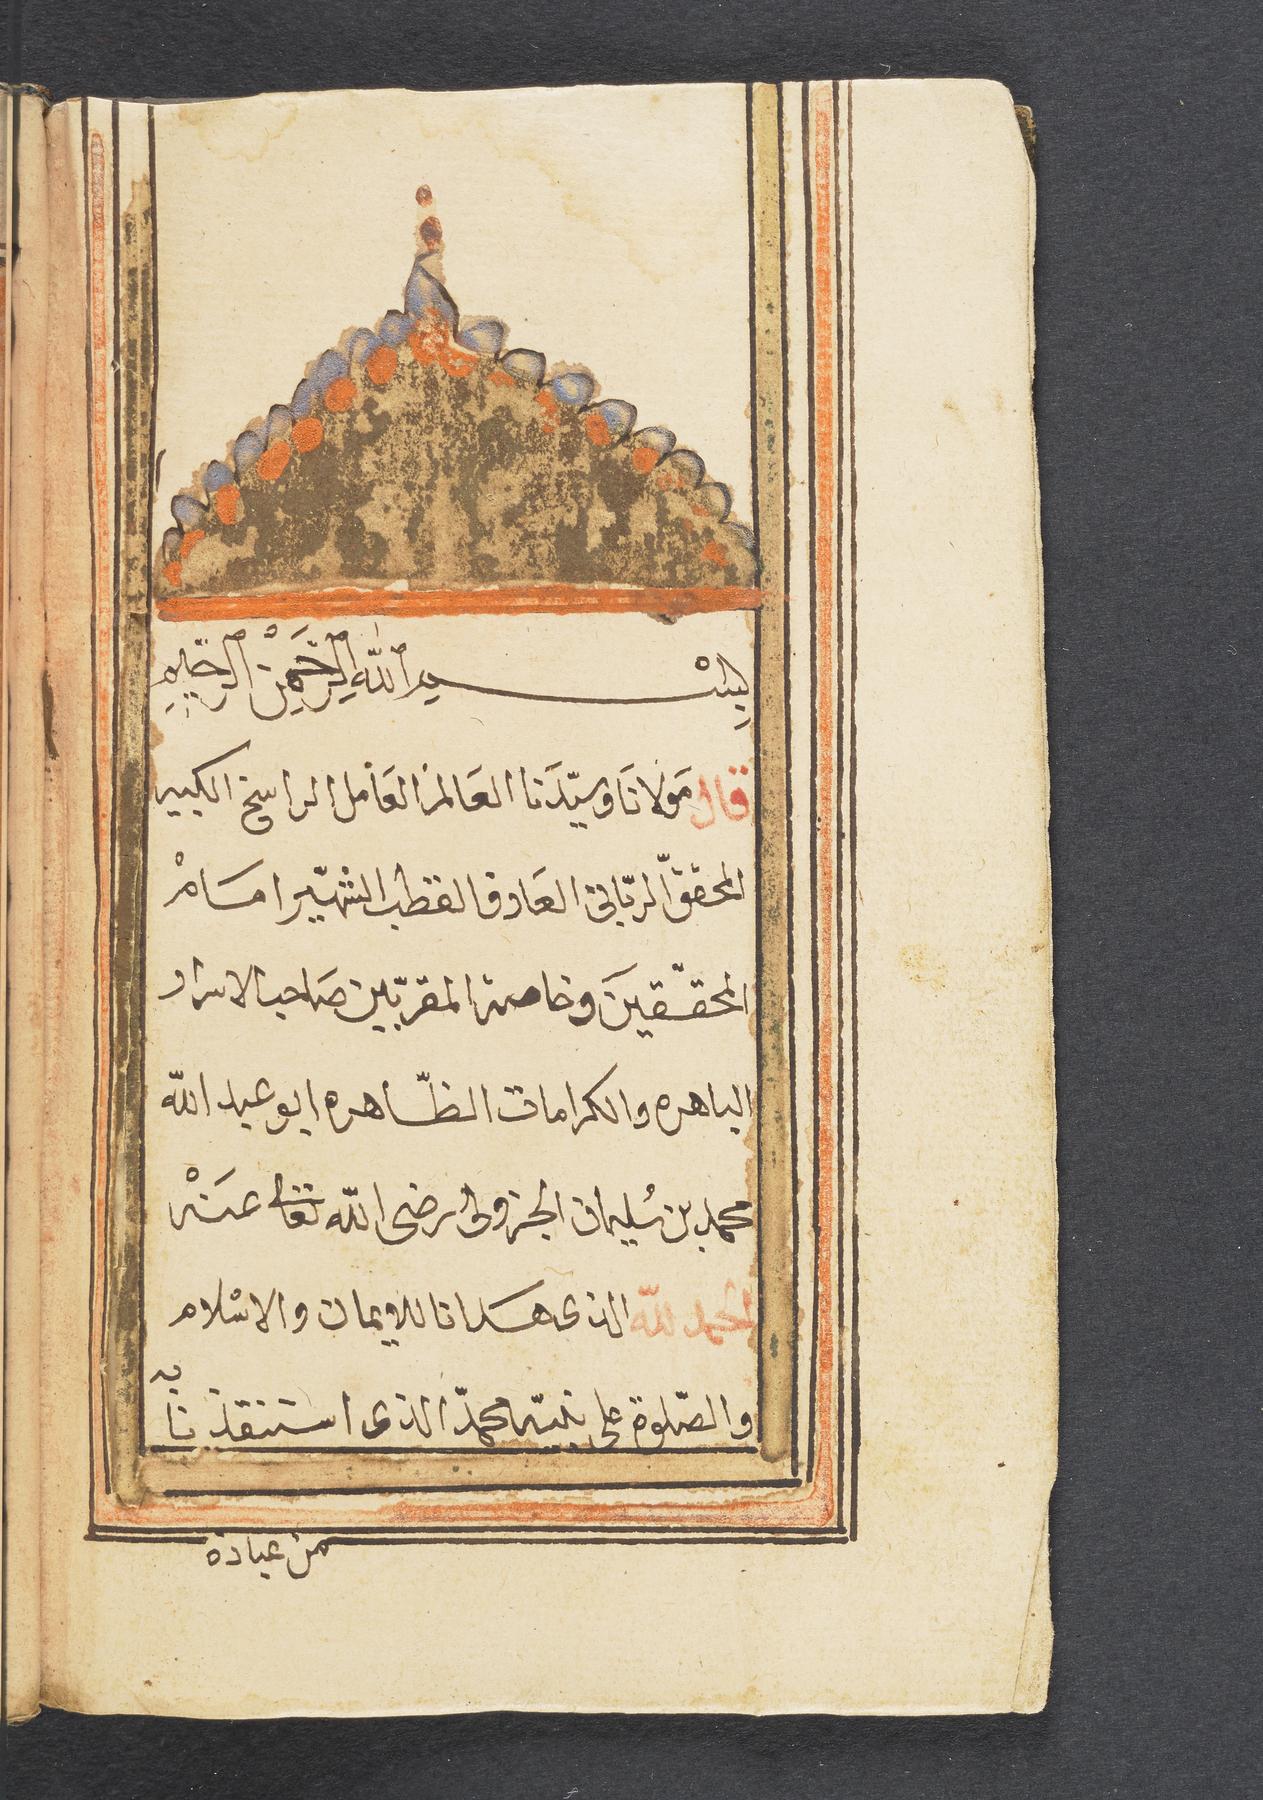 بِسْم الله الرَّحْمٰنِ الرحيمِ
قال مَولانَا وَسيّدَنا العَالم العَامل الراسخ الكبير
المحقق الربّانى العَارف القطب الشهيّر امَام
المحقّقينَ وخاصة المقرّبين صَاحب الاسرار
الباهره والكرامات الظّاهره ابو عبد الله
محمد بن سُليمان الجزولى رضى الله تعالى عَنْه
الحمد لله الذى هدانا للايمان والاسْلام
والصّلوة على نبيّه محمّد الذى استنقذنا به
من عبادة